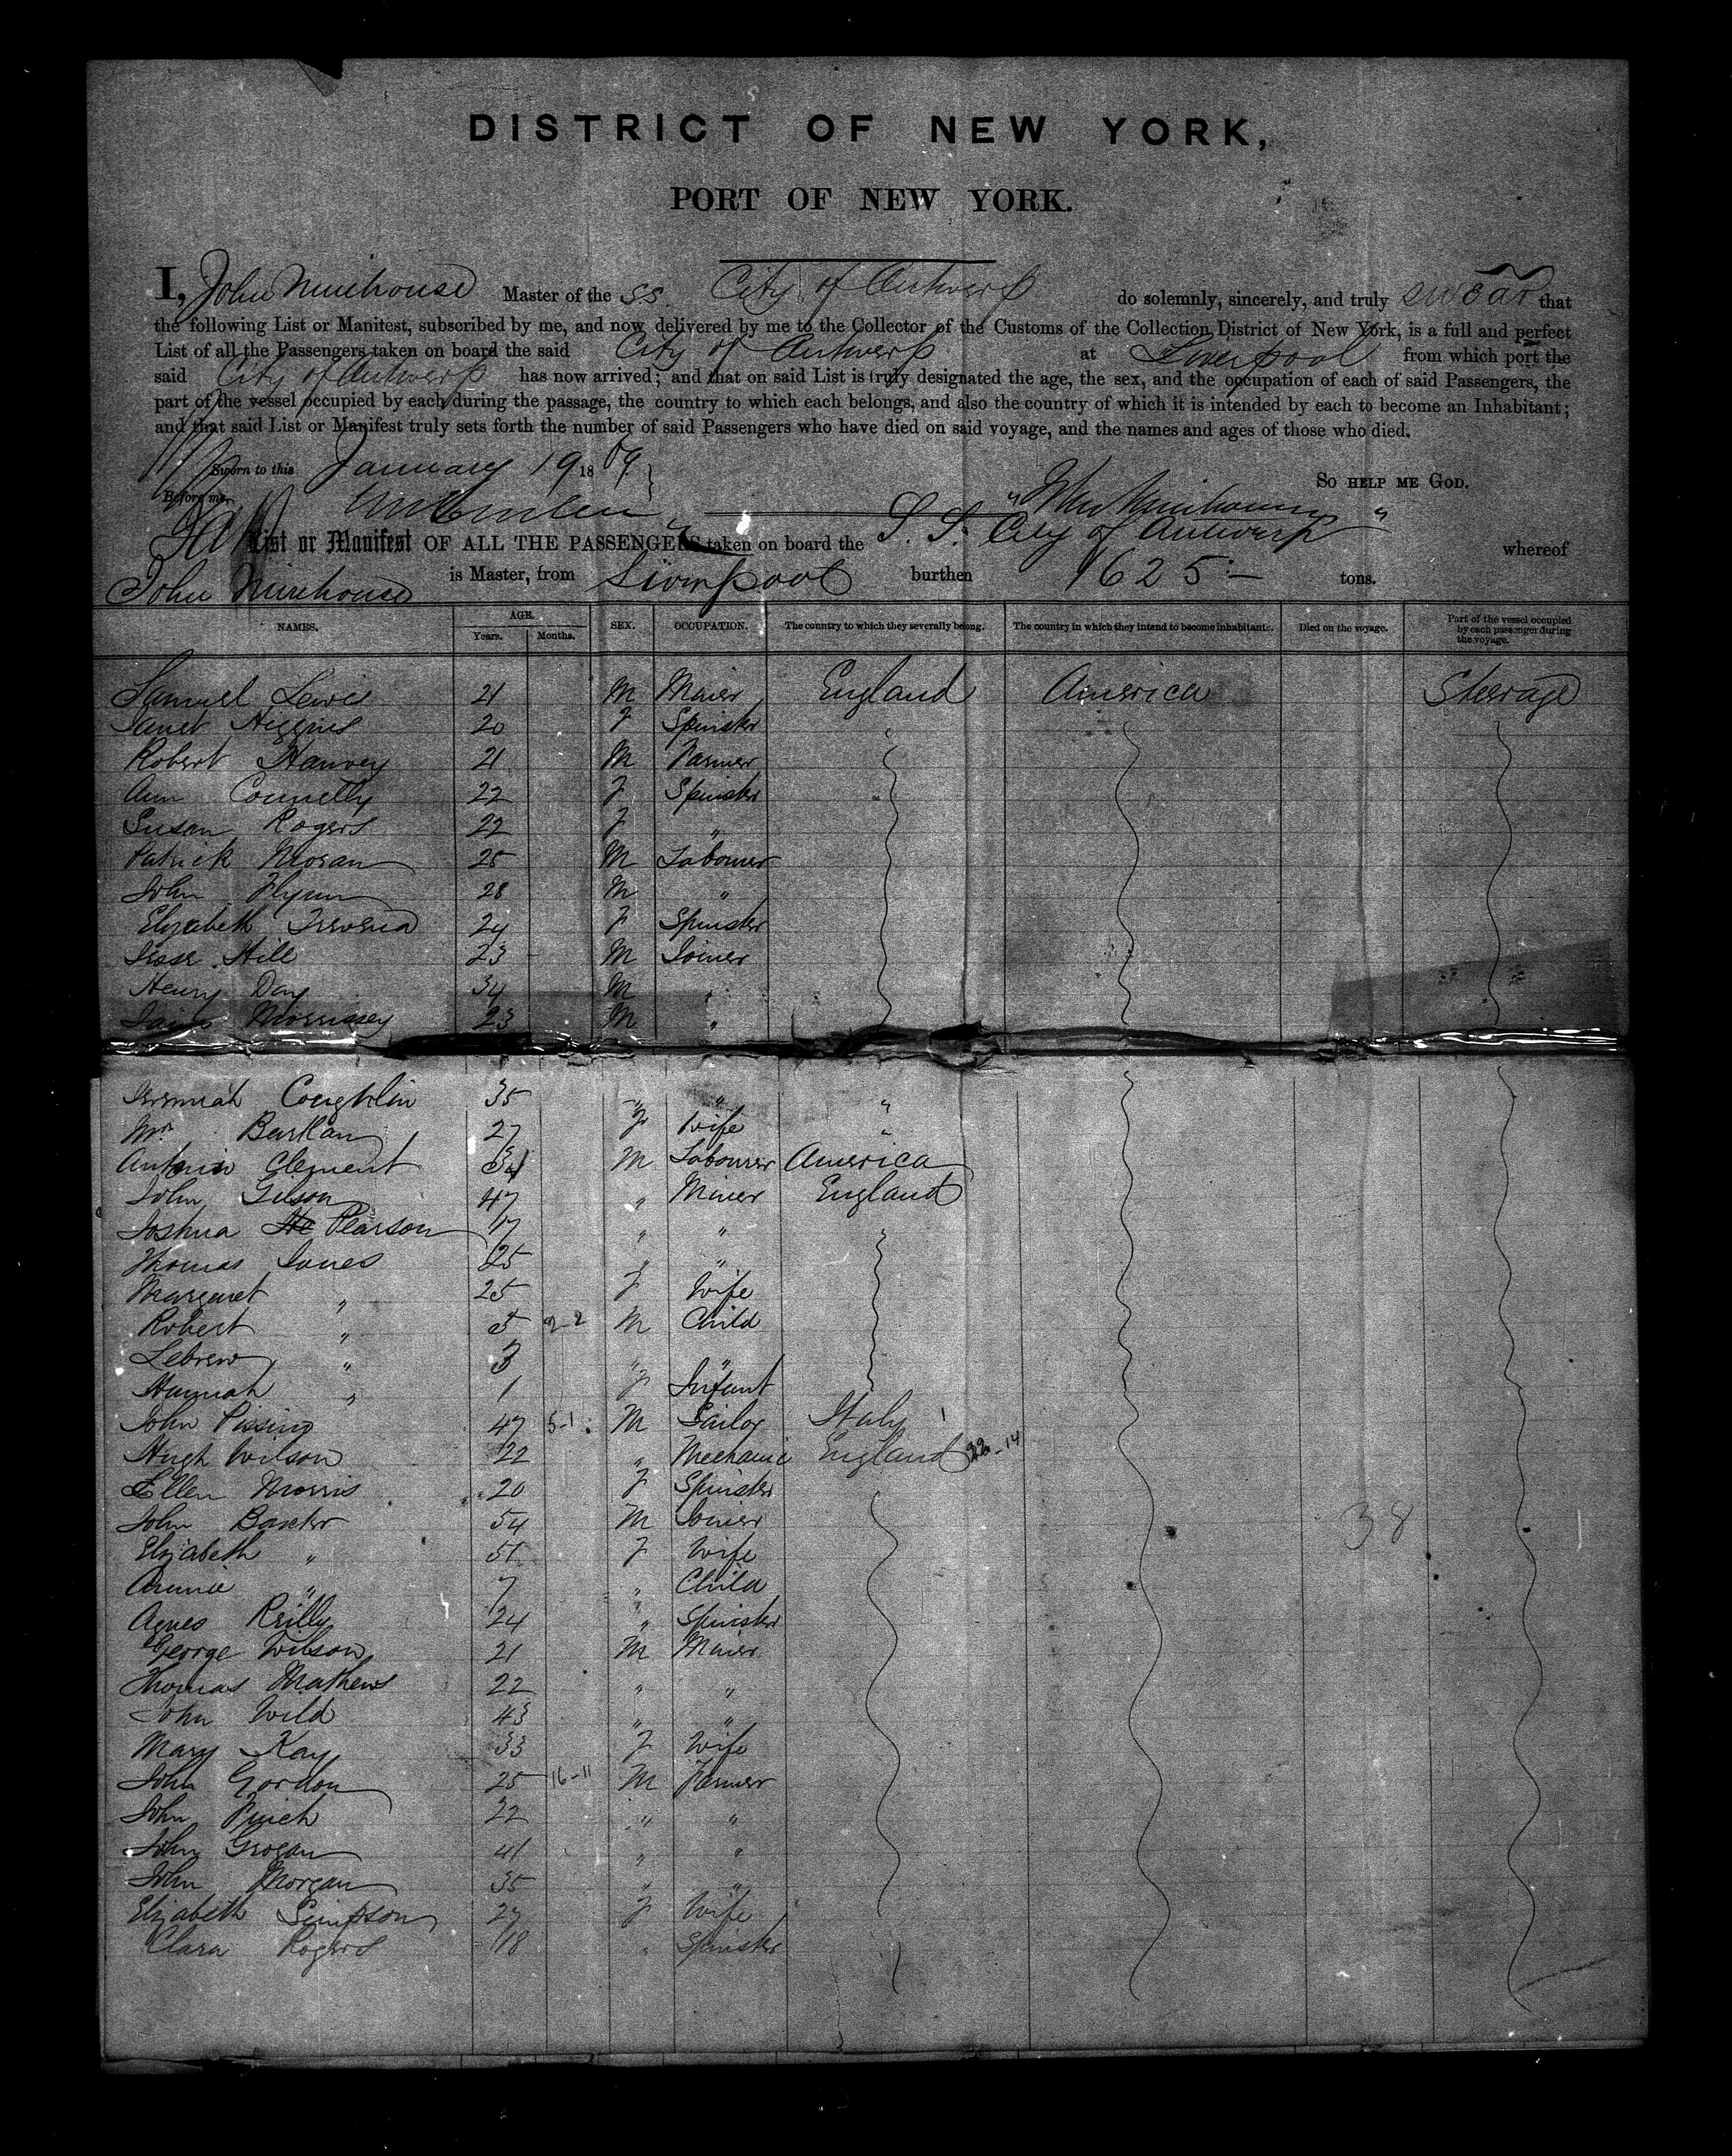 DISTRICT OF NEW YORK,
PORT OF NEW YORK.
I, John Mirehouse Master of the SS. City of Antwerp do solemnly, sincerely, and truly swear that
the following List or Manifest, subscribed by me, and now delivered by me to the Collector of the Customs of the Collection District of New York, is a full and perfect
List of all the Passengers taken on board the said City of Antwerp at Liverpool from which port the
said City of Antwerp has now arrived; and that on said List is truly designated the age, the sex, and the occupation of each of said Passengers, the
part of the vessel occupied by each during the passage, the country to which each belongs, and also the country of which it is intended by each to become an Inhabitant;
and that said List or Manifest truly sets forth the number of said Passengers who have died on said voyage, and the names and ages of those who died.
Sworn to this January 19 1869 So help me God.
Before me, Jno Mirehouse
List or Manifest OF ALL THE PASSENGERS taken on board the S. S. City of Antwerp whereof
John Mirehouse is Master, from Liverpool burthen 1625 :— tons.
NAMES. AGE. Years. Months. SEX. OCCUPATION. The country to which they severally belong. The country in which they intend to become inhabitants. Died on the voyage. Part of the vessel occupied by each passenger during the voyage.
Samuel Lewis 21 M Miner England America Steerage
Janet Higgins 20 F Spinster "
Robert Harvey 21 M Farmer
Ann Connelly 22 F Spinster
Susan Rogers 22 F "
Patrick Moran 25 M Labourer
John Flynn 28 M "
Elizabeth 24 F Spinster
Jesse Hill 23 M Joiner
Henry Day 34 M "
Morrissey 23 M "
Jeremiah Coughlin 35 " " "
Mrs Barkan 27 F Wife "
Antonio Clement 34 M Labourer America
John Gilson 47 " Miner England
Joshua Pearson 17 " "
Thomas Jones 25 " "
Margaret " 25 F Wife
Robert " 5 2-2 M Child
" 3 " "
Hannah " 1 F Infant
John 47 5-1 M Sailor Italy
Hugh Wilson 22 " Mechanic England 22-14
Ellen Morris 20 F Spinster
John Baxter 54 M Joiner 38
Elizabeth " 51 F Wife
Annie " 7 " Child
Agnes Reilly 24 " Spinster
George Wilson 21 M Miner
Thomas Mathews 22 " "
John Wild 43 " "
Mary Kay 33 F Wife
John Gordon 25 16-11 M Farmer
John 22 " "
John Grogan 41 " "
John Morgan 35 " "
Elizabeth Simpson 27 F Wife
Clara Rogers 18 " Spinster